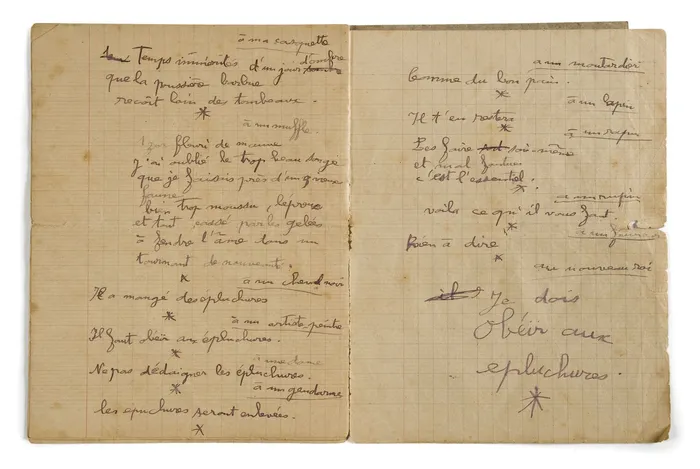 à ma casquette
Temps immérités d'un jour d'ombre
que la poussière barbue
reçoit loin des tombeaux.
*
à un muffle
fleuri de mauve
j'ai oublié le trop beau
que je faisais près d'un gros
bien trop moussu, lépreux
et tout cassé par les gelées
à fendre l'âme dans un
tournant de
*
à un cheval noir
Il a mangé des épluchures
*
à un artiste peintre
Il faut obéir aux épluchures.
*
à une
Ne pas dédaigner les épluchures.
*
à un gendarme
les epluchures seront enlevées.
*
à un moutardier
Comme du bon pain.
*
à un lapin
Il t'en restera
*
à un rupin
Les faire soi-même
et mal
c'est l'essentiel.
*
à un rupin
voilà ce qu'il vous faut.
*
à un
Rien à dire
*
au nouveau roi
Je dois
obéir aux
epluchures.
*